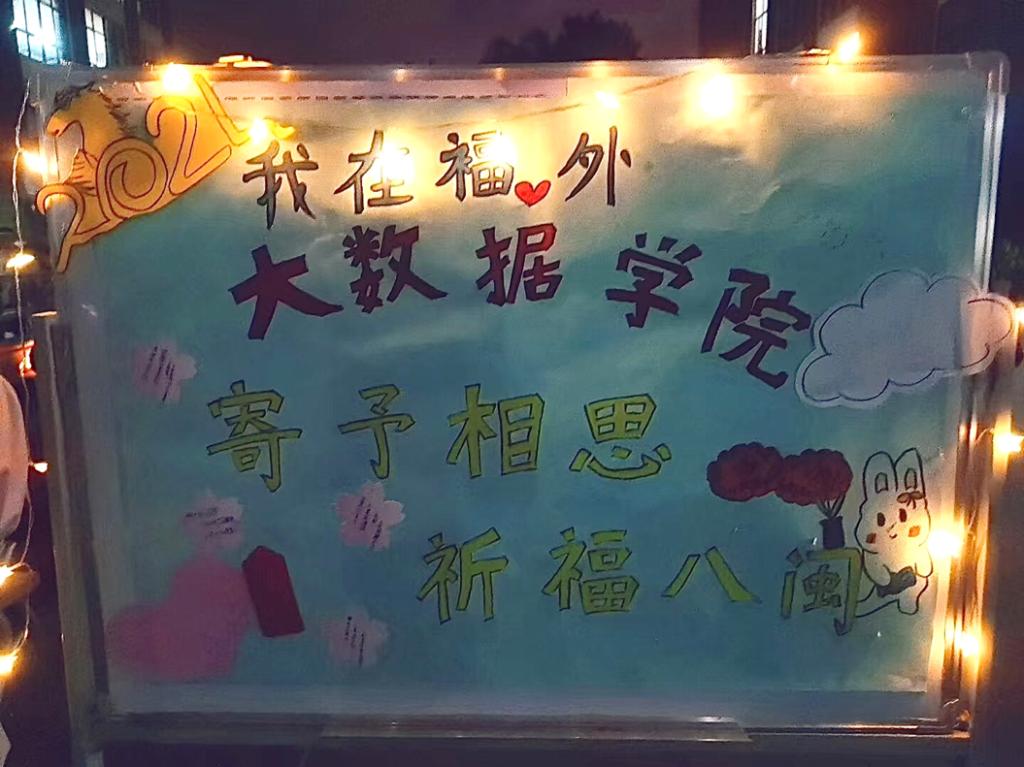 2021
我在福外
大数据学院
寄予相思
祈福八闽